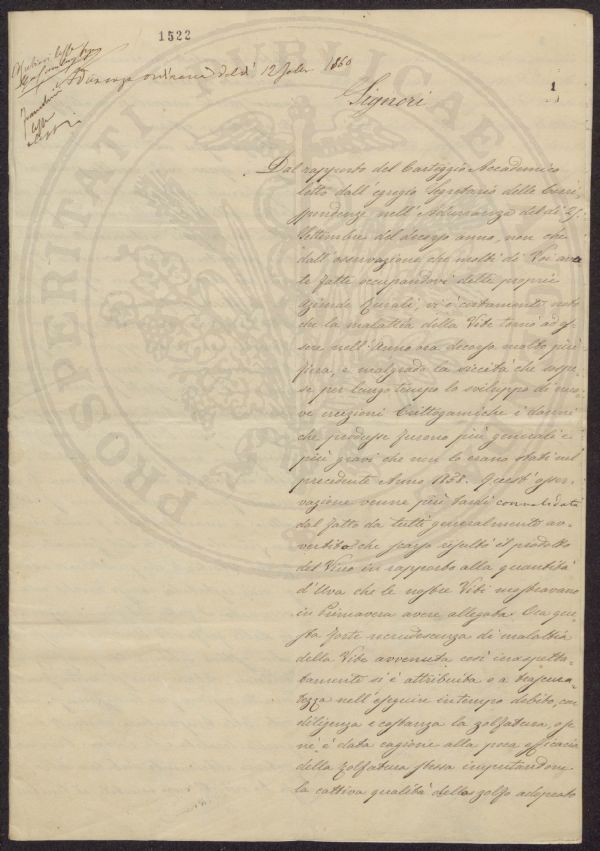 1522
1
Adunanza ordinaria del dì 12 1860
Signori
Dal rapporto del Carteggio Accademico
letto dall'egregio Segretario delle Corri
spondenze nell'Adunanza del dì 25
Settembre del decorso anno, non che
dall'osservazione che molti di Voi avra
te fatte occupandovi delle proprie
Aziende Rurali, vi è certamente noto
che la malattia della Vite tornò ad es
sere nell'Anno ora decorso molto più
fiera, e malgrado la siccità che sospe
se per lungo tempo lo sviluppo di nuo
ve Crittogamiche i danni
che produsse furono più generali e
più gravi che non lo erano stati nel
precedente Anno 1858. Quest'osser
vazione venne più tardi convalidata
dal fatto da tutti generalmente av
vertito che scarso risultò il prodotto
del Vino in rapporto alla quantità
d'Uva che le nostre Viti mostravano
in Primavera avere allegata. Ora que
sta forte recrudescenza di malattia
della Vite avvenuta così inaspetta
tamente si è attribuita o a trascura
tezza nell'eseguire in tempo debito, con
diligenza e costanza la zolfatura, o se
ne è data cagione alla poca efficacia
della zolfatura stessa imputandone
la cattiva qualità dello zolfo adoprato
PROSPERITATI PUBLICAE